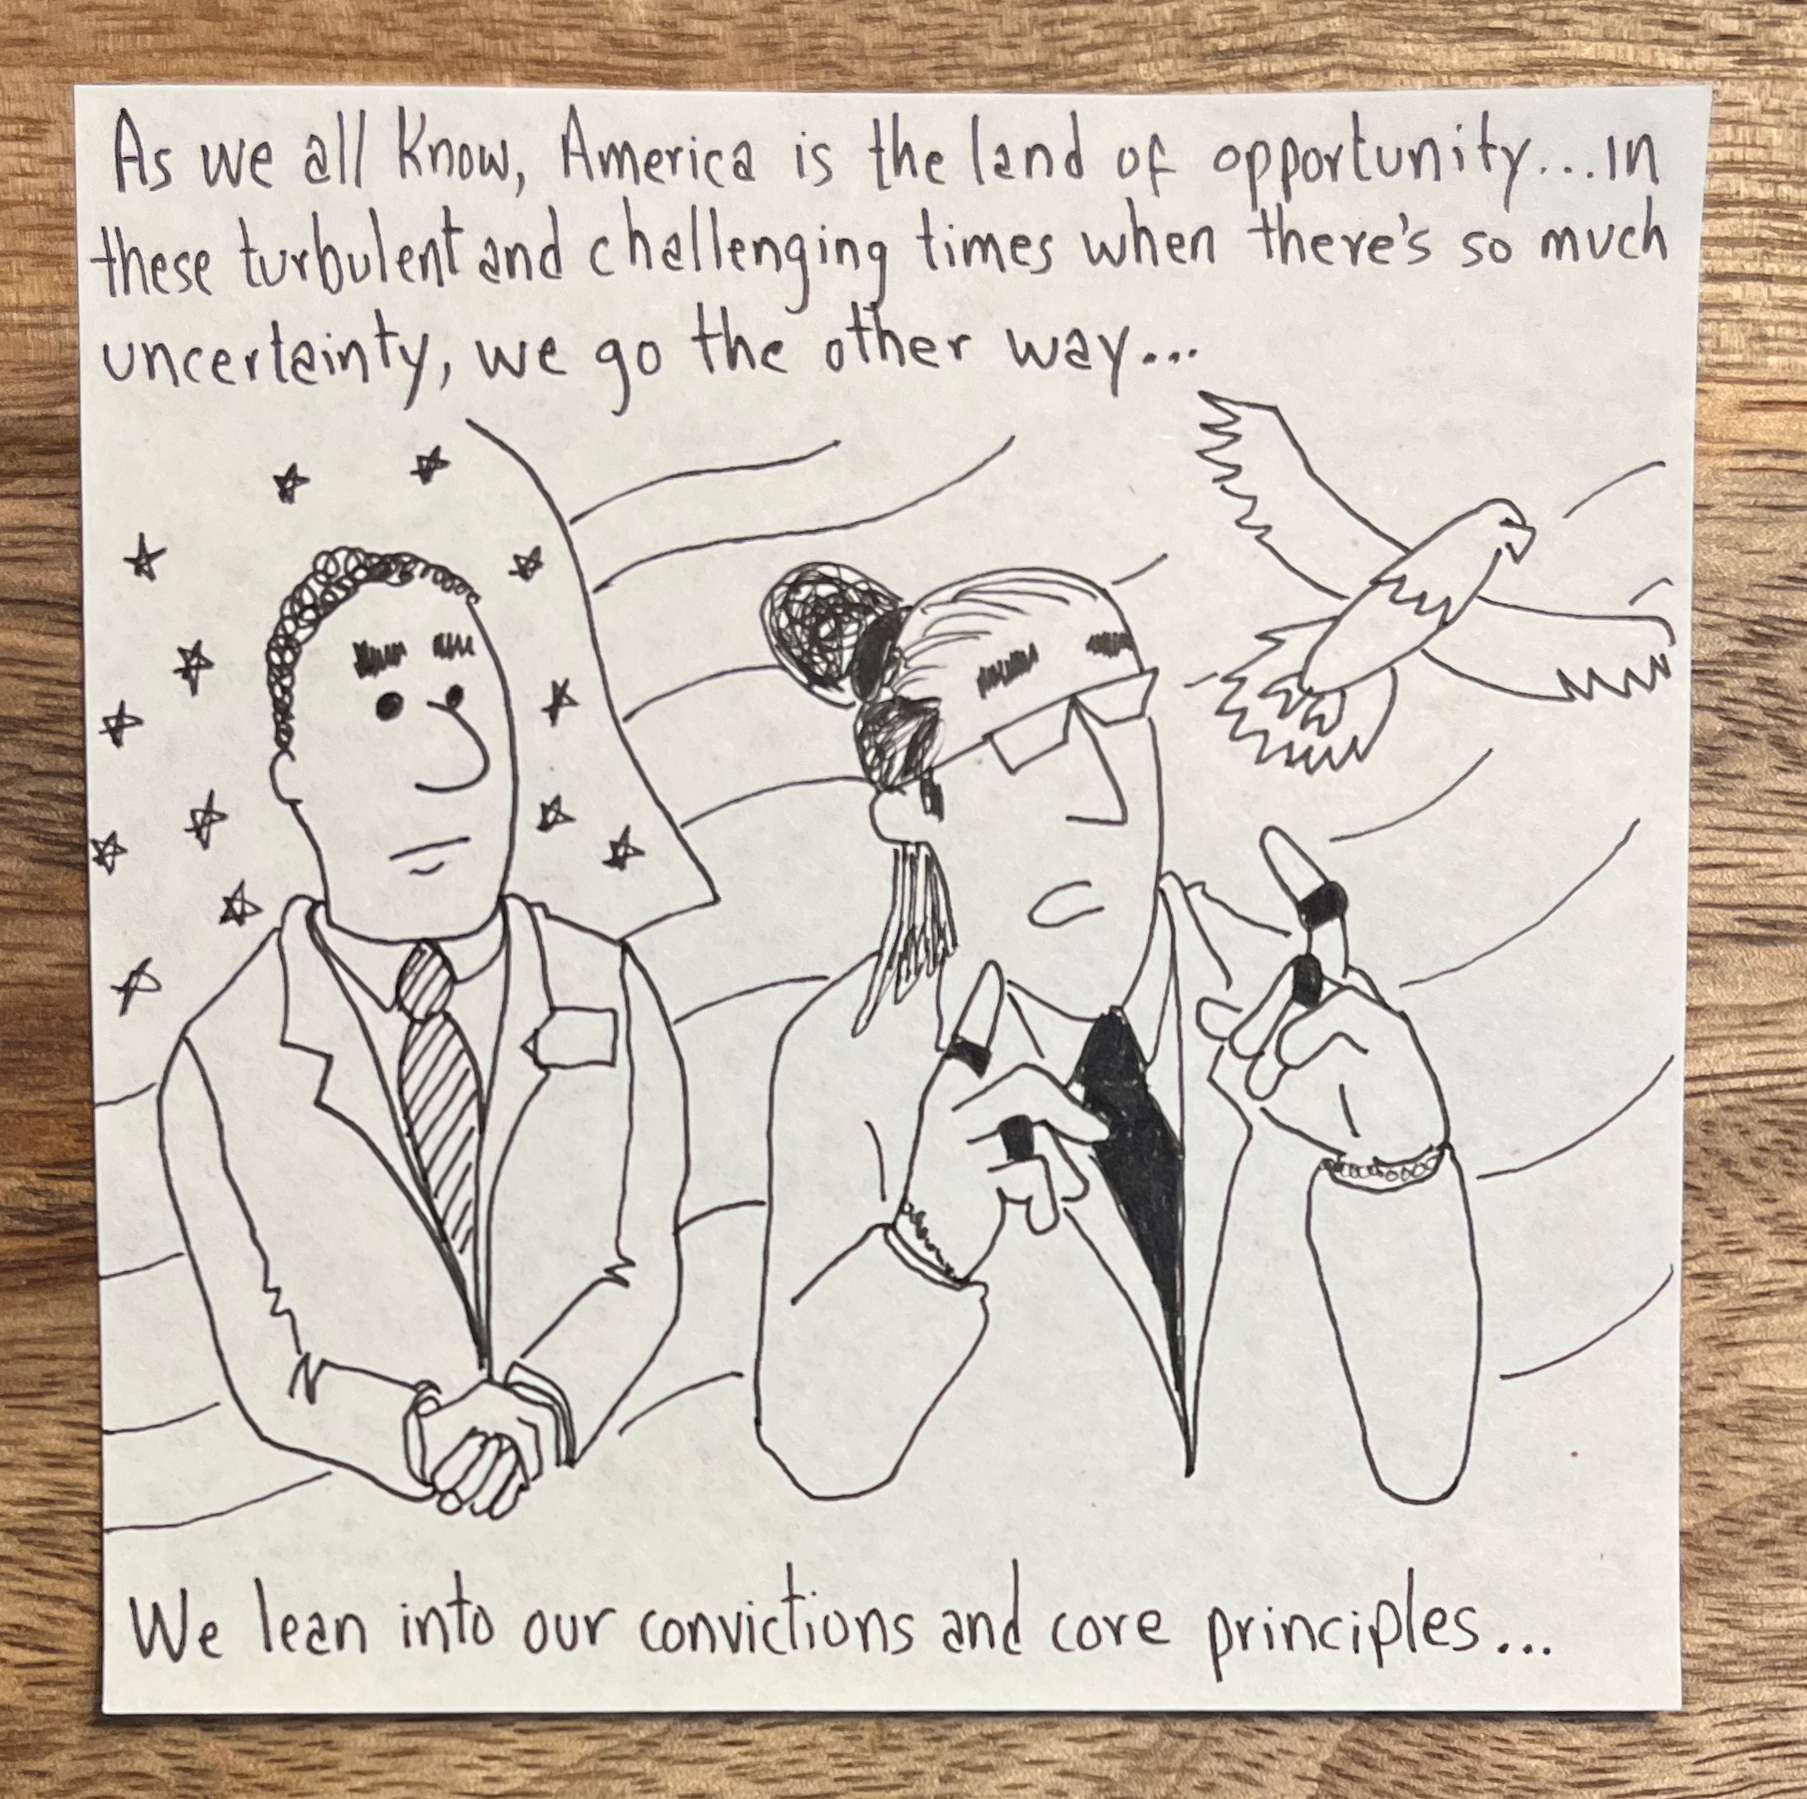 As we all know, America is the land of opportunity...in
these turbulent and challenging times when there's so much
uncertainty, we go the other way...
We lean into our convictions and core principles...